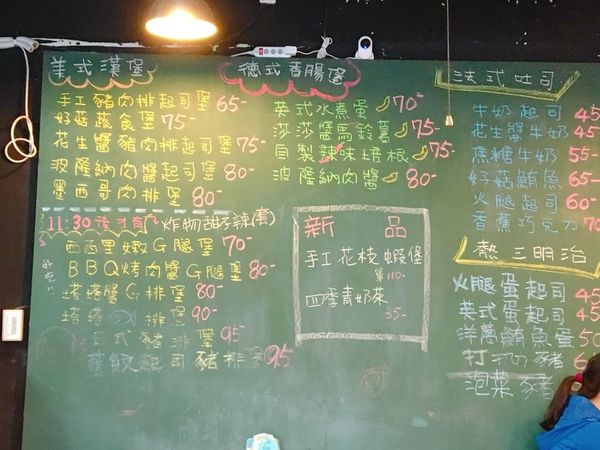 美式漢堡
手工豬肉排起司堡 65-
好菇蔬食堡 75-
花生醬豬肉排起司堡 75-
波隆納肉醬起司堡 80-
墨西哥肉排堡 80-
11:30後才有 炸物甜不辣(套)
西西里嫩G腿堡 70-
BBQ烤肉醬G腿堡 80-
塔塔醬G排堡 80-
塔塔 排堡 90-
日式豬排堡 95
起司豬排堡 95
德式香腸堡
英式水煮蛋 70-
莎莎醬馬鈴薯 75-
自製辣味培根 75-
波隆納肉醬 80-
新品
手工花枝蝦堡
單110-
四季青奶茶
35-
法式吐司
牛奶起司 45
花生醬牛奶 45
焦糖牛奶 55-
好菇鮪魚 65
火腿起司 60
香蕉巧克力 70
熱三明治
火腿蛋起司 45
英式蛋起司 45
洋蔥鮪魚蛋 50
打拋豬 6
泡菜豬